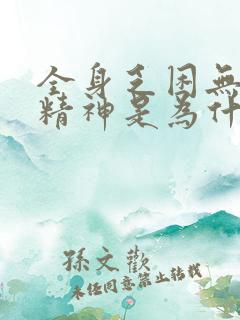 全身乏困無
精神是為什
孫文歡
未任同意禁止转载